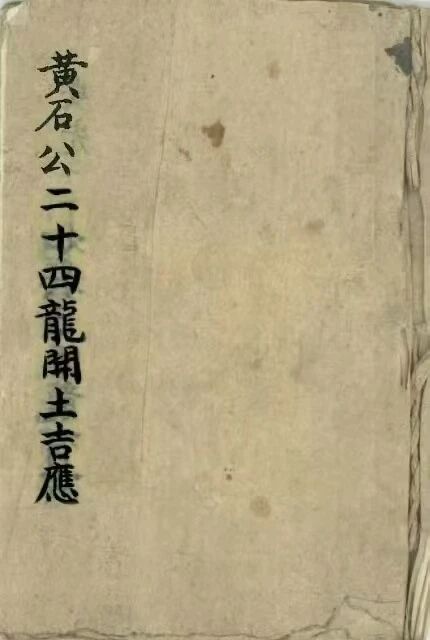 黃石公二十四龍開土吉應